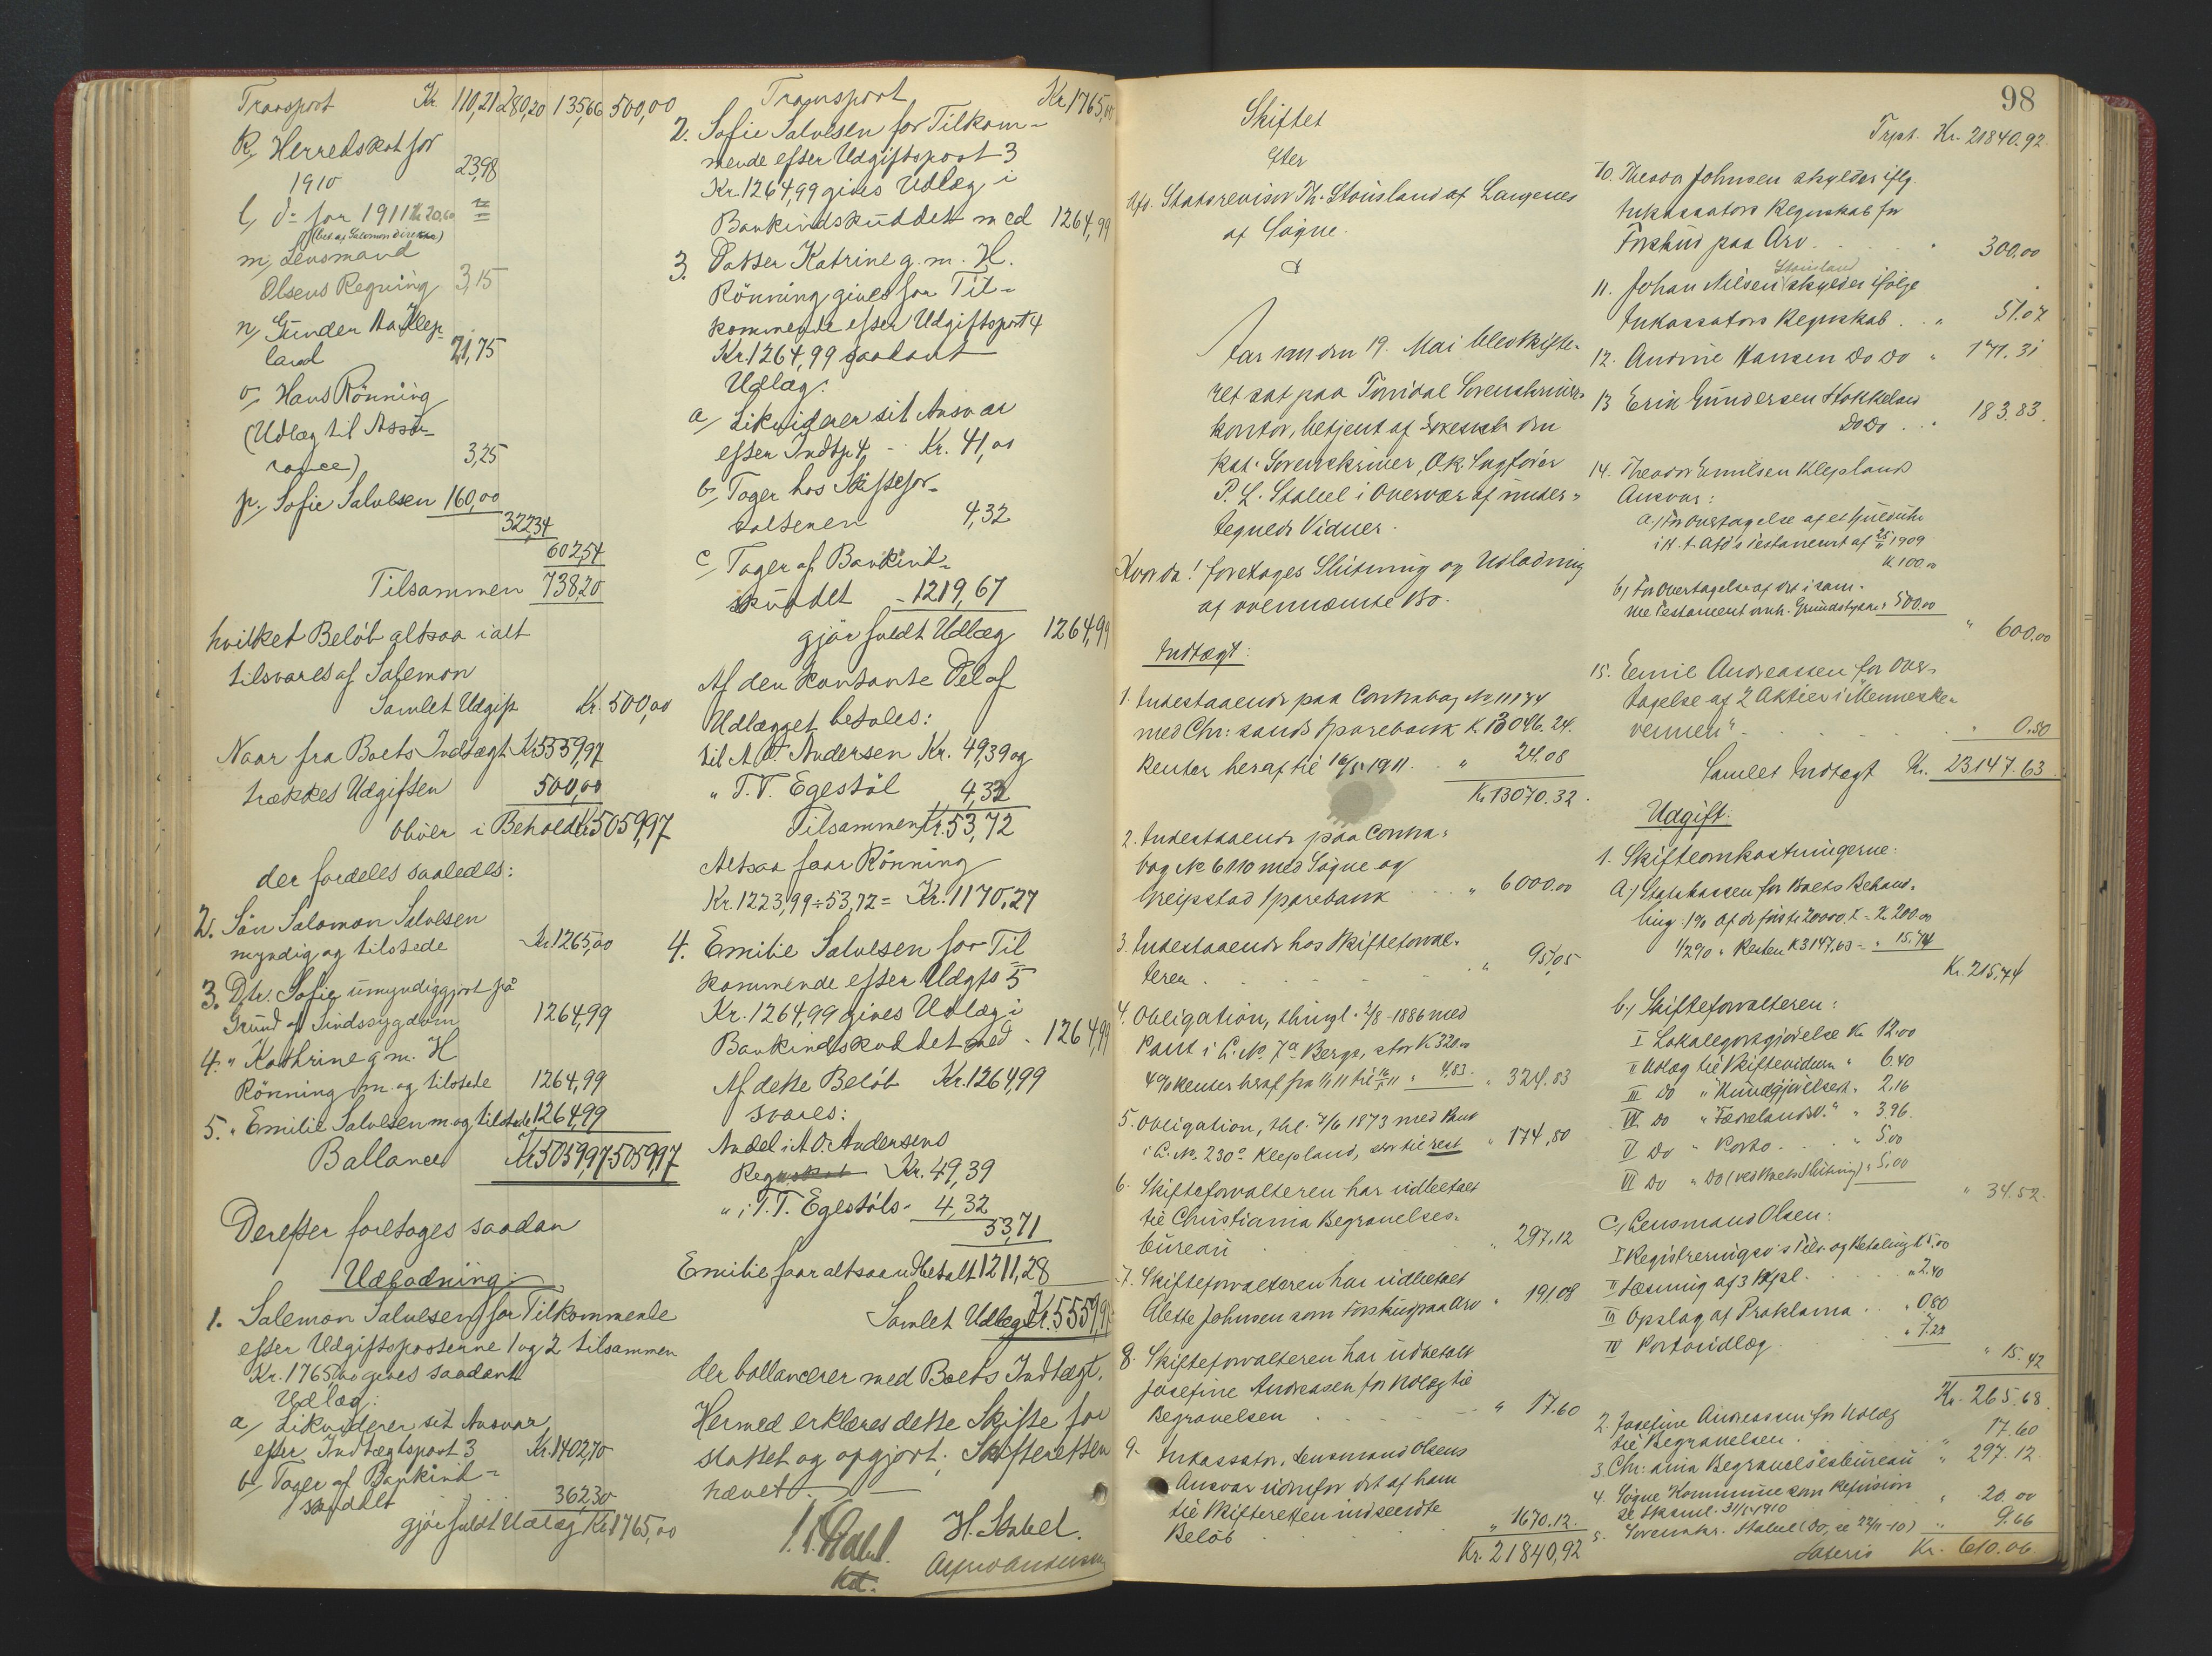 Transport Kr. 110,21 280,20 135,66 500,00
k, Herredskat for
1910 23,98
l, do for 1911 Kr 20,60 "
(bet. af Salomon direkte)
m, Lensmand
Olsens Regning 3,15
n, Gunder Aa. Klep-
land 21,75
o, Hans Rönning
(Udlæg til Assu-
rance) 3,25
p, Sofie Salvesen 160,00
322,34
602,54
Tilsammen 738,20
hvilket Beløb altsaa ialt
tilsvares af Salemon
Samlet Udgift Kr. 500,00
Naar fra Boets Indtægt Kr 5559,97
trækkes Udgiften 500,00
bliver i Behold Kr 5059,97
der fordeles saaledes:
2. Sön Salomon Salvesen
myndig og tilstede Kr 1265,00
3. Dtr. Sofie umyndiggjort på
Grund af Sindssygdom 1264,99
4. " Kathrine g m. H
Rönning m. og tilstede 1264,99
5. " Emilie Salvesen m. og tilstede 1264,99
Ballance Kr 5059,97 5059,97
Derefter foretages saadan
Udlodning:
1. Salemon Salvesen for Tilkommende
efter Udgiftsposterne 1 og 2 tilsammen
Kr. 1765,00 gives saadant
Udlæg:
a, Likviderer sit Ansvar
efter Indtægtspost 3 Kr. 1402,70
b, Tager af Bankind-
skuddet 362,30
gjør fuldt Udlæg Kr 1765,00
Transport Kr. 1765,00
2. Sofie Salvesen for Tilkom-
mende efter Udgiftspost 3
Kr. 1264,99 gives Udlæg i
Bankindskuddet med 1264,99
3. Datter Katrine g. m. H.
Rönning gives for Til-
kommende efter Udgiftspost 4
Kr. 1264,99 saadant
Udlæg:
a, Likviderer sit Ansvar
efter Indtp 4, - Kr. 41,00
b, Tager hos Skiftefor-
valteren 4,32
c, Tager af Bankind-
skuddet - 1219,67
gjör fuldt Udlæg 1264,99
Af den kontante Del af
Udlægget betales:
til A. O. Andersen Kr. 49,39 og
" T. T. Egestöl 4,33
Tilsammen Kr. 53,72
Altsaa faar Rönning
Kr. 1223,99 ÷ 53,72 = Kr. 1170,27
4. Emilie Salvesen for Til
kommende efter Udgts 5
Kr. 1264,99 gives Udlæg i
Bankindskuddet med - 1264,99
Af dette Beløb Kr. 1264,99
svares:
Andel i A. O. Andersens
Regnskab Kr. 49,39
" i T. T. Egestöls - 4,32
53,71
Emilie faar altsaa udbetalt 1211,28
Samlet Udlæg Kr. 5559,97
der ballancerer med Boets Indtægt.
Hermed erklæres dette Skifte for
sluttet og opgjort; Skifteretten
hævet.
P. L. Stabel
Kst.
H. Stabel.
Alfred Andersen
98
Skiftet
efter
Afd. Statsrevisor Th. Stousland af Langenes
af Søgne.
Aar 1911 den 19. Mai blev Skifte-
ret sat paa Torridal Sorenskriver-
kontor, betjent af den
kst. Sorenskriver, O.R. Sagfører
P. L. Stabel i Overvær af under-
tegnede Vidner.
Hvorda! foretages Slutning og Udlodning
af ovennævnte Bo.
Indtægt:
1. Indestaaende paa Contrabog No 11174
med Chr: sands Sparebank K. 13046.24.
Renter heraf til 16/5 1911. . " 24.08
Kr 13070.32.
2. Indestaaende paa Contra-
bog No 6110 med Søgne og
Greipstad Sparebank . . . " 6000.00
3. Indestaaende hos Skifteforval-
teren . . . . " 95,05
4. Obligation, thingl. 2/8-1886 med
Pant i G. No. 7a Berge, stor K 320.00
4% Renter heraf fra 1/1 11 til 16/5 11 " 4,83. " 324.83
5. Obligation, thl. 7/6 1873 med Pant
i G. No. 230 Klepland, stor til rest " 174,50
6. Skifteforvalteren har udbetalt
til Christiania Begravelses-
bureau . . . " 297,12
7. Skifteforvalteren har udbetalt
Alette Johnsen som Forskud paa Arv " 191.08
8. Skifteforvalteren har udbetalt
Josefine Andreasen for Udlæg til
Begravelsen . . . " 17.60
9. Inkassator, Lensmand Olsens
Ansvar udenfor det af ham
til Skifteretten indsendte
Beløb . . . " 1670.12.
Kr. 21840,92
Trpt. Kr. 21840.92.
10. Theodor Johnsen skylder iflg.
Inkassators Regnskab for
Forskud paa Arv . . . " 300.00
11. Johan Nilsen Stousland skylder ifølge
Inkassators Regnskab . . " 51.07
12. Andrine Hansen Do Do " 171.31
13 Erik Gundersen Stokkeland
Do Do . . " 183.83.
14. Theodor Emilsen Klepland
Ansvar:
a.) For Overtagelse af et Guldur
i H. t. Afd's Testament af 25/11 1909
K 100.00
b.) For Overtagelse af det i sam-
me Testament omh. Grundstykke " 500.00
" 600.00
15. Emil Andreassen for Over-
tagelse af 2 Aktier i "Menneske-
vennen" . . . " 0.50
Samlet Indtægt Kr. 23147.63.
Udgift:
1. Skifteomkostningerne:
a.) Statskassen for Boets Behand-
ling: 1% af de første 20000 K = K 200.00
1/2% " Resten K 3147.63 = " 15.74
Kr. 215,74
b.) Skifteforvalteren:
I Lokalegodtgjørelse Kr 12.00
II Udlæg til Skiftevidner " 6.40
III Do " Kundgjørelser " 2.16
IV Do " "Fædrelandsv." " 3.96.
V Do " Porto . . . " 5.00
VI Do " Do (ved Boets Slutning) " 5.00
" 34.52.
c.) Lensmand Olsen:
I Registreringsv's Tilv. og Betaling K 5.00
II Læsning af 3 Expl. . . . " 2.40
III Opslag af Proklama . . " 0.80
IV Portoudlæg . . . " 7.22
" 15.42
Kr. 265.68.
2. Josefine Andreassen for Udlæg
til Begravelsen . . . " 17.60
3. Chr: ania Begravelsesbureau " 297.12.
4. Søgne Kommune som Refusion
se Skaml. 31/5 1910 " 20.00
5. Sorenskr. Stabel (Do, se 22/11-10) " 9.66
Lateris Kr. 610.06